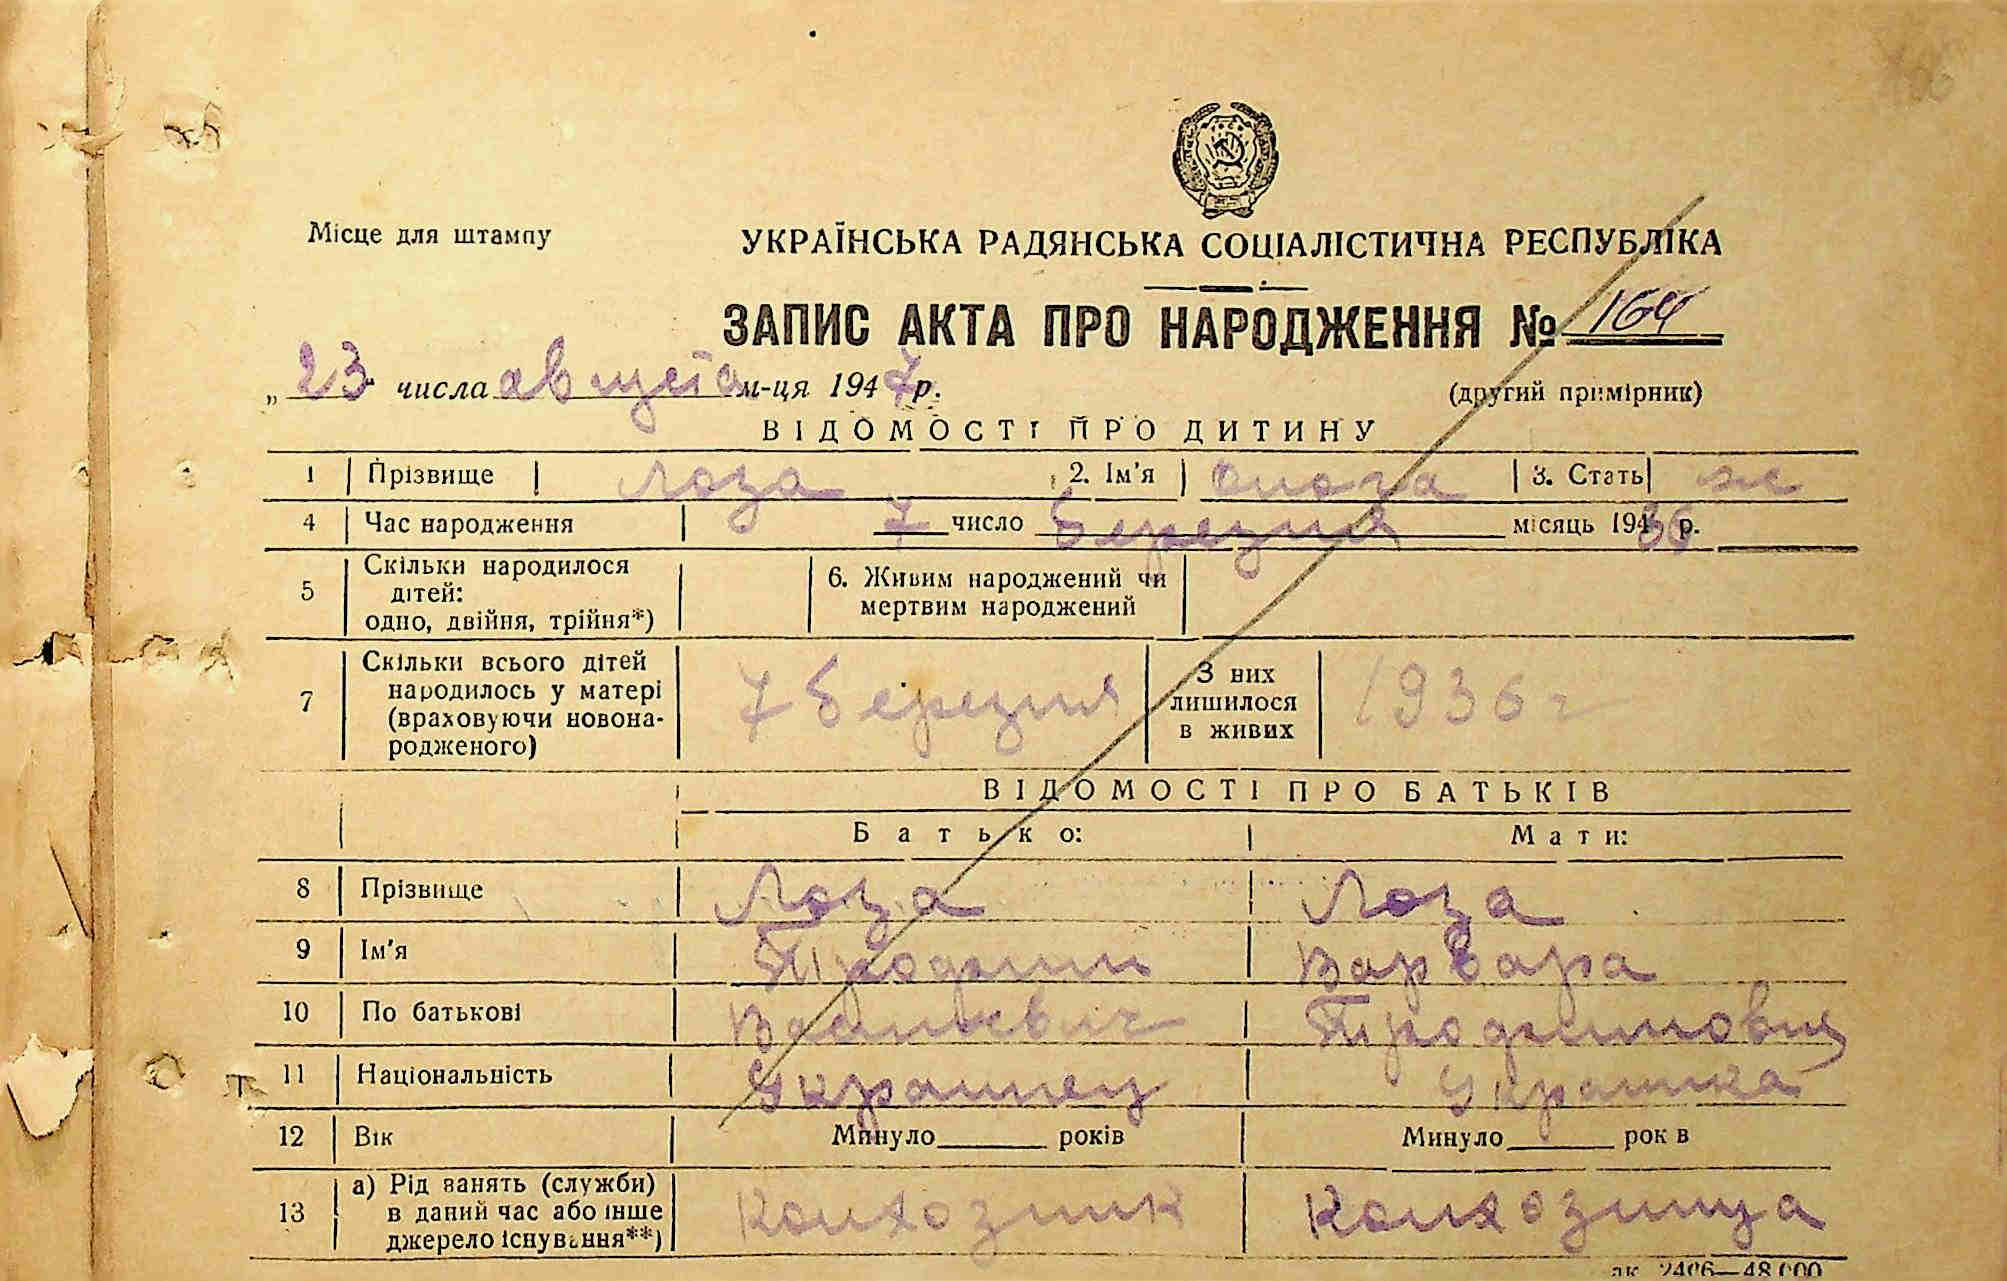 Місце для штампу
УКРАЇНСЬКА РАДЯНСЬКА СОЦІАЛІСТИЧНА РЕСПУБЛІКА
ЗАПИС АКТА ПРО НАРОДЖЕННЯ № 164
„ 23 числа августа м-ця 1947 р.
(другий примірник)
ВІДОМОСТІ ПРО ДИТИНУ
1 Прізвище Лоза 2. Ім'я 3. Стать ж
4 Час народження 7 число березня місяць 1936 р.
5 Скільки народилося
дітей:
одно, двійня, трійня*)
6. Живим народжений чи
мертвим народжений
7 Скільки всього дітей
народилось у матері
(враховуючи новона-
родженого)
7 березня
З них
лишилося
в живих
1936 г
ВІДОМОСТІ ПРО БАТЬКІВ
Батько: Мати:
8 Прізвище Лоза Лоза
9 Ім'я Трофим Варвара
10 По батькові Трофимовна
11 Національність Украинец Украинка
12 Вік Минуло років Минуло рок в
13 а) Рід занять (служби)
в даний час або інше
джерело існування**)
Колхозник Колхозница
ак. 2406—48.000